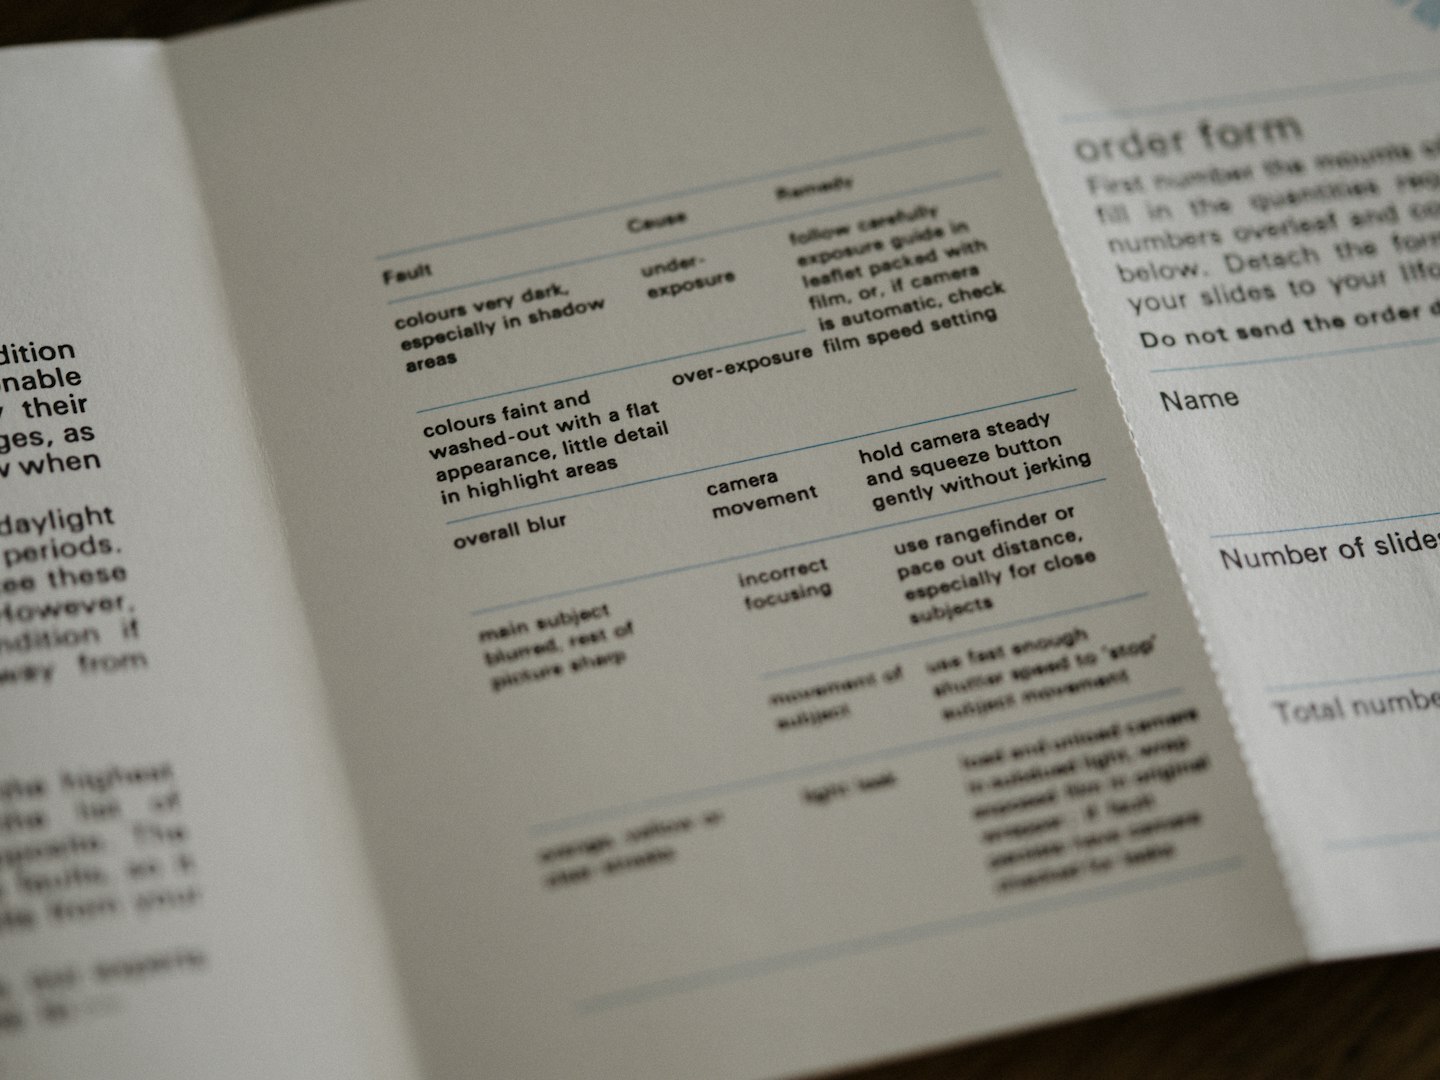 dition
onable
their
ges, as
w when
daylight
periods.
ee these
However,
ndition if
away from
the highest
the list of
The
faults, as it
from your
Fault
Cause
Remedy
colours very dark,
especially in shadow
areas
under-
exposure
follow carefully
exposure guide in
leaflet packed with
film, or, if camera
is automatic, check
film speed setting
colours faint and
washed-out with a flat
appearance, little detail
in highlight areas
over-exposure
overall blur
camera
movement
hold camera steady
and squeeze button
gently without jerking
main subject
blurred, rest of
picture sharp
incorrect
focusing
use rangefinder or
pace out distance,
especially for close
subjects
movement of
subject
use fast enough
shutter speed to 'stop'
subject movement
orange, yellow or
light leak
load and unload camera
in subdued light, wrap
exposed film in original
order form
First number the mounts of
fill in the quantities req
numbers overleaf and co
below. Detach the form
your slides to your Ilfo
Do not send the order d
Name
Number of slides
Total numbe